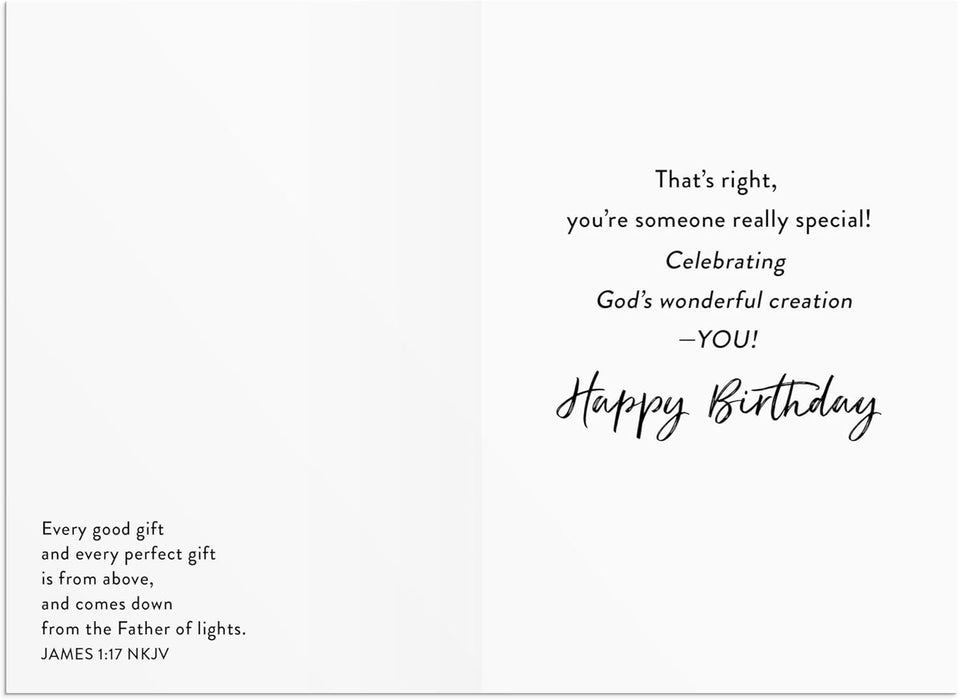 Every good gift
and every perfect gift
is from above,
and comes down
from the Father of lights.
JAMES 1:17 NKJV
That’s right,
you’re someone really special!
Celebrating
God’s wonderful creation
—YOU!
Happy Birthday